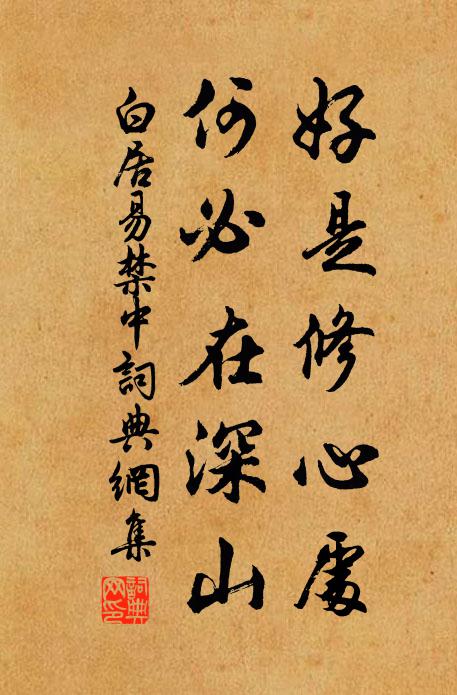 好是修心處
何必在深山
白居易禁中詞典網集
詞典
网印